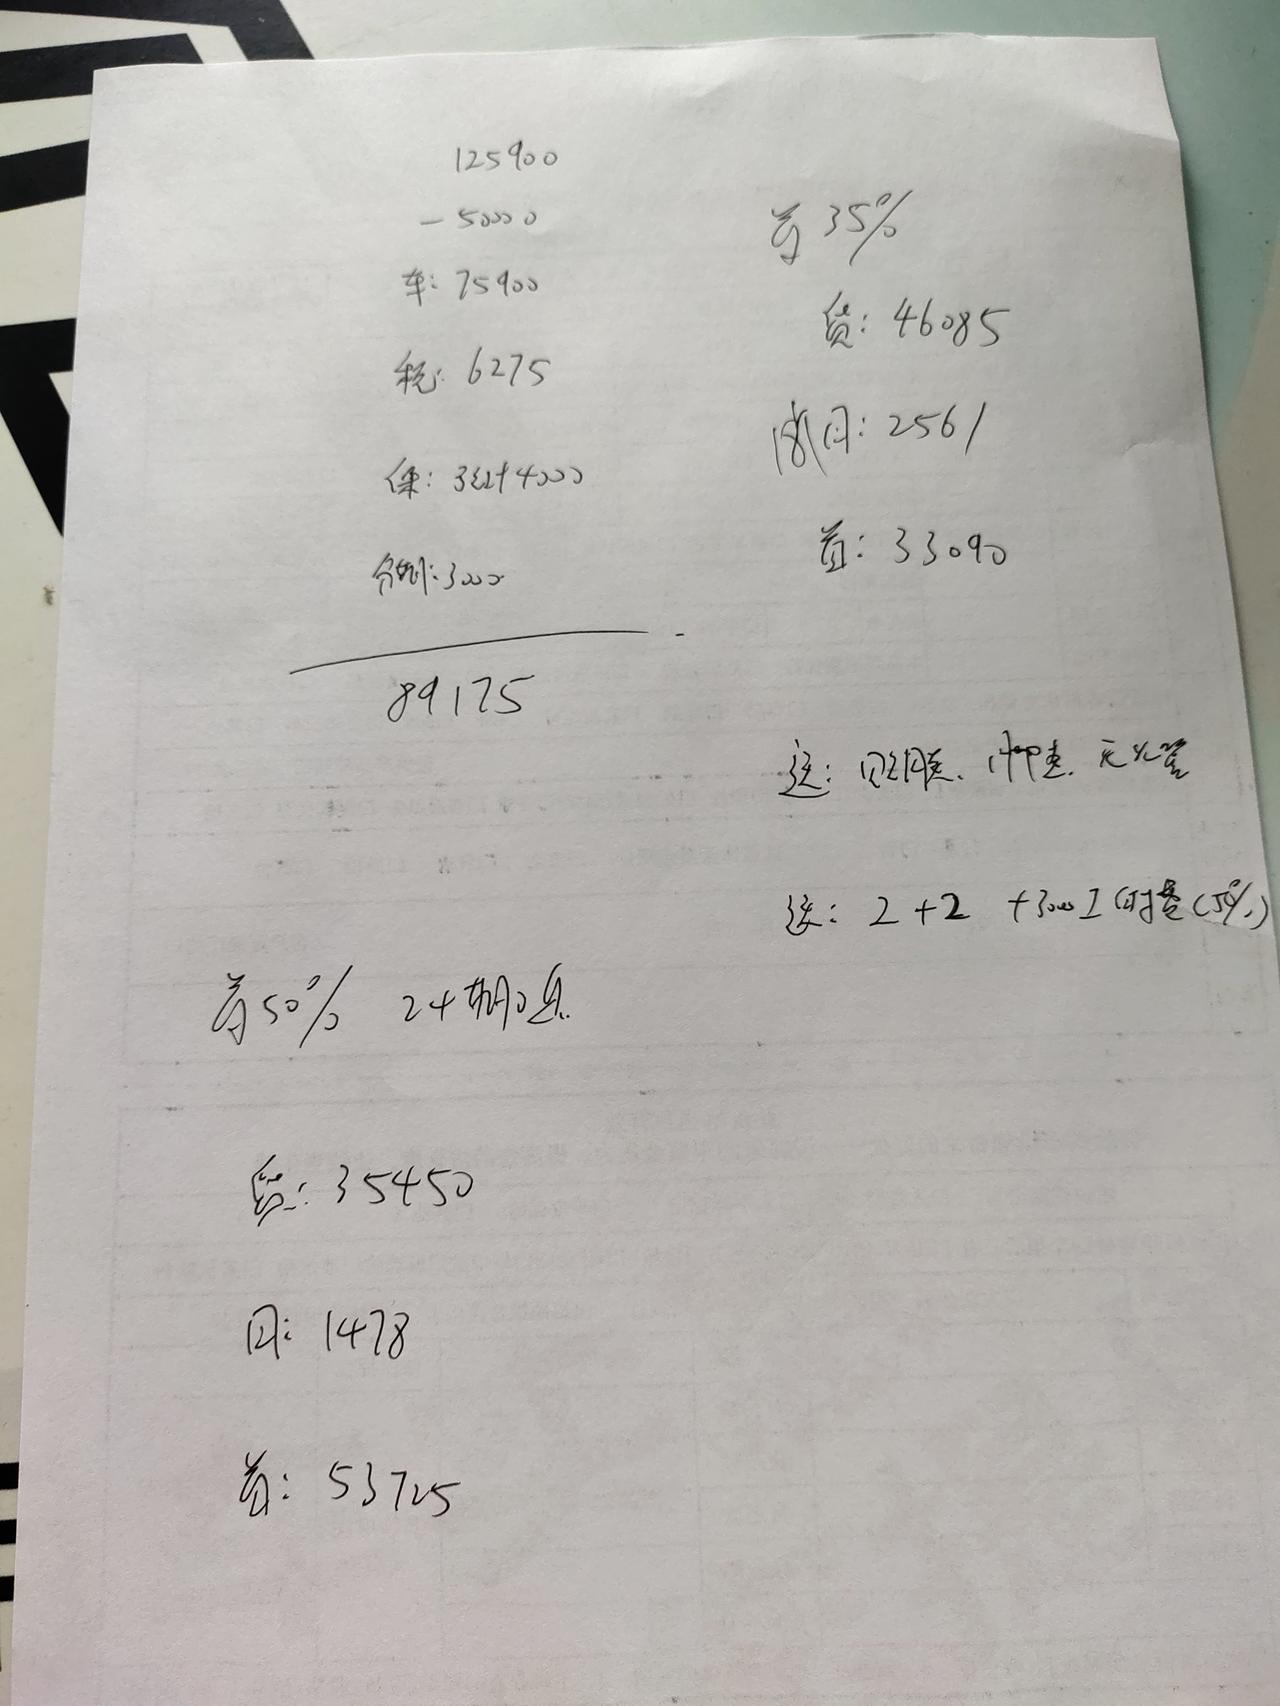 125900
-50000
车: 75900
税: 6275
保: 交叶4000
分期: 3000
89175
首35%
贷: 46085
18期月: 2561
首: 33090
送: 贴膜、脚垫、灭火器
送: 2+2 +3000工时费(50%)
首50% 24期0息
贷: 35450
月: 1478
首: 53725